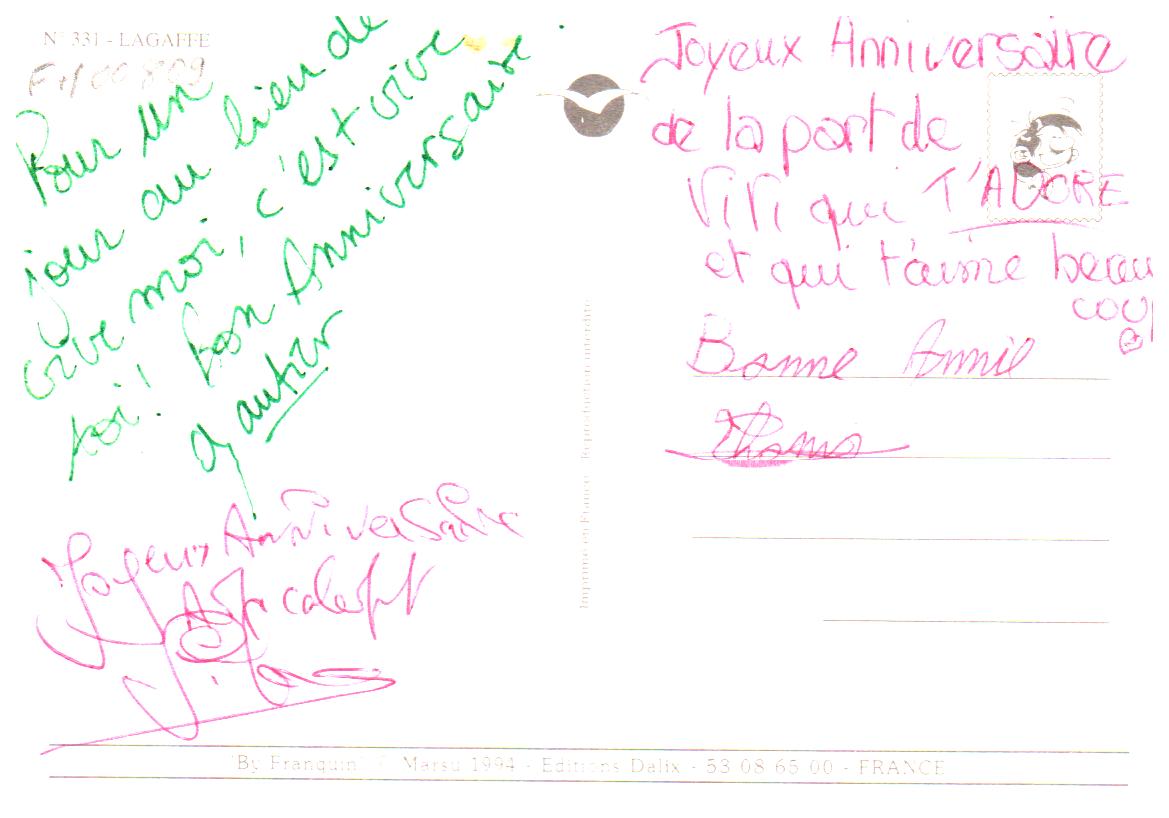 N° 331 - LAGAFFE
Pour un
jour au lieu de
crier moi, c'est vive
toi! bon Anniversaire
Gautier
Joyeux Anniversaire
Joyeux Anniversaire
de la part de
ViVi qui T'ADORE
et qui t'aime beau
coup
Bonne Annie
Thomas
Imprimé en France - Reproduction interdite
"By Franquin" © Marsu 1994 - Editions Dalix - 53 08 65 00 - FRANCE